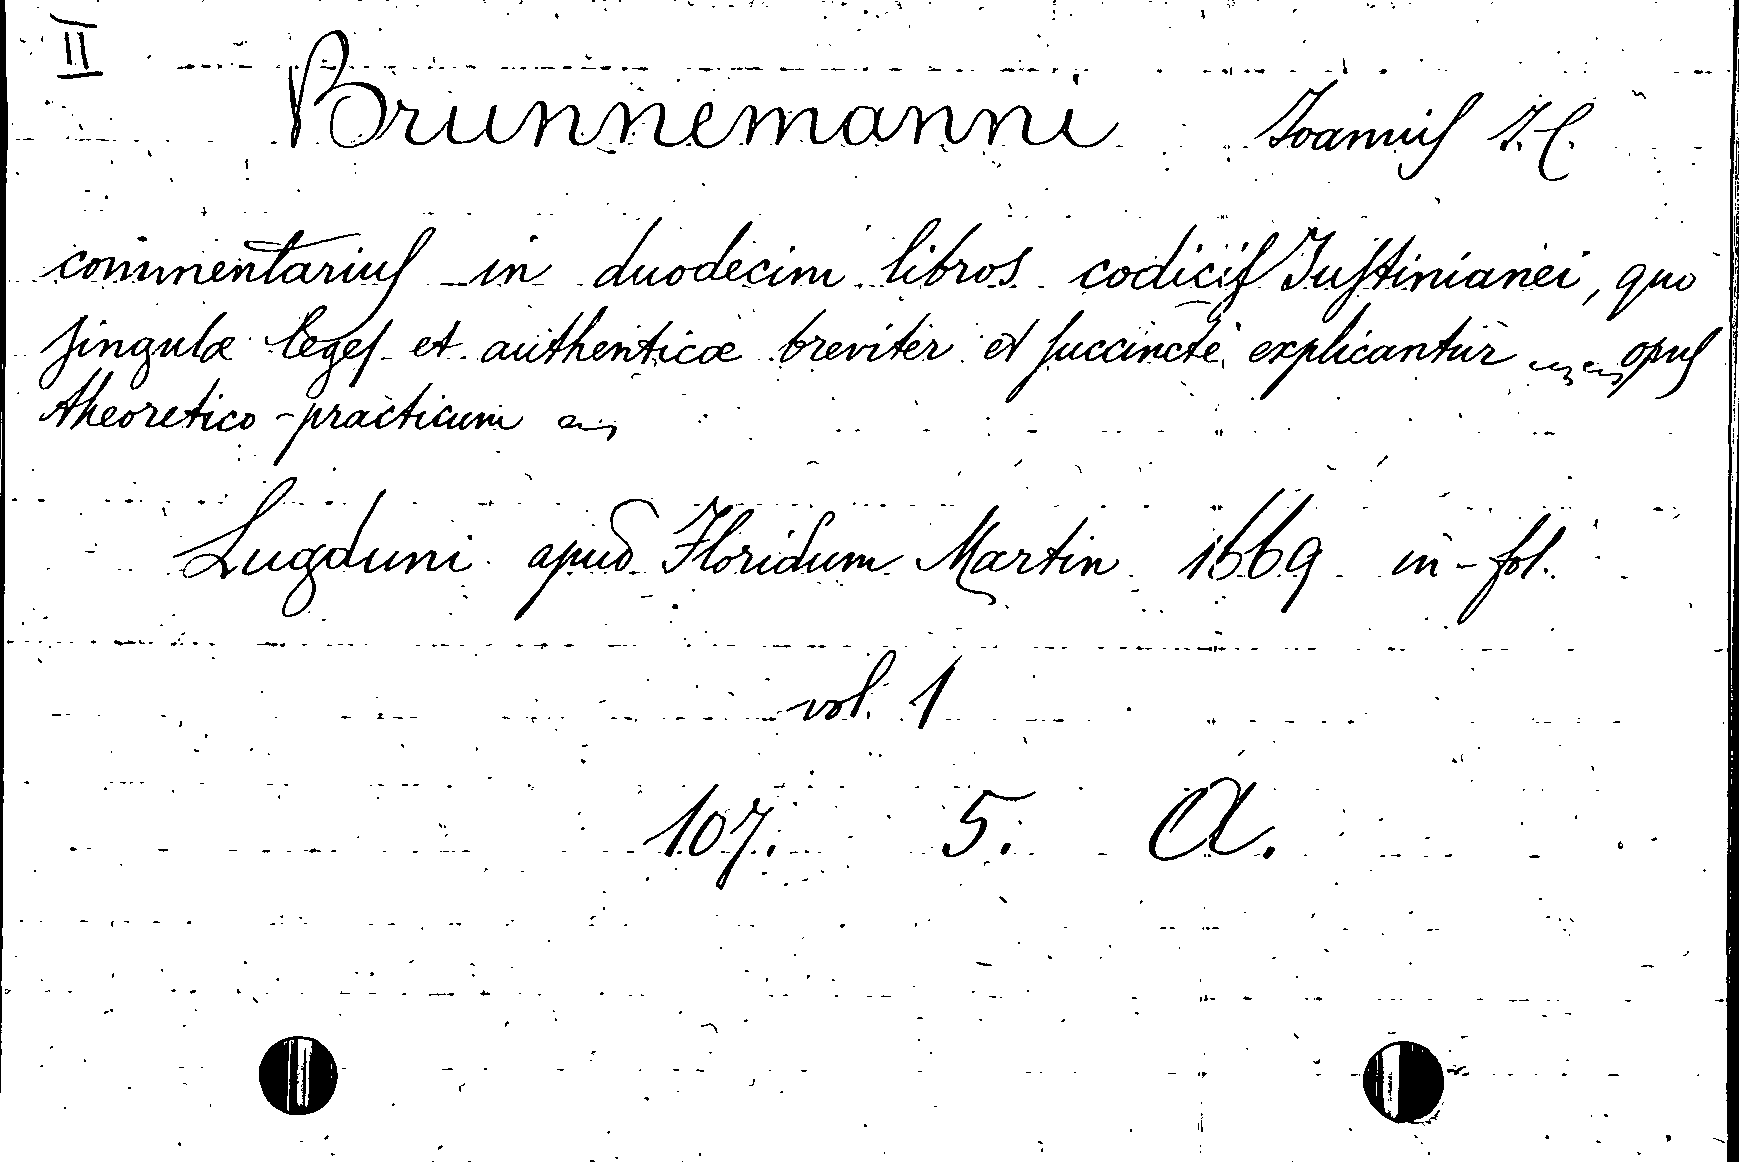 II
Brunnemanni Joannis J.C.
commentarius in duodecim libros codicis Justinianei, quo
singulæ leges et authenticæ breviter et succincte explicantur opus
theoretico-practicum
Lugduni apud Floridum Martin 1669 in-fol.
vol. 1
107. 5. A.